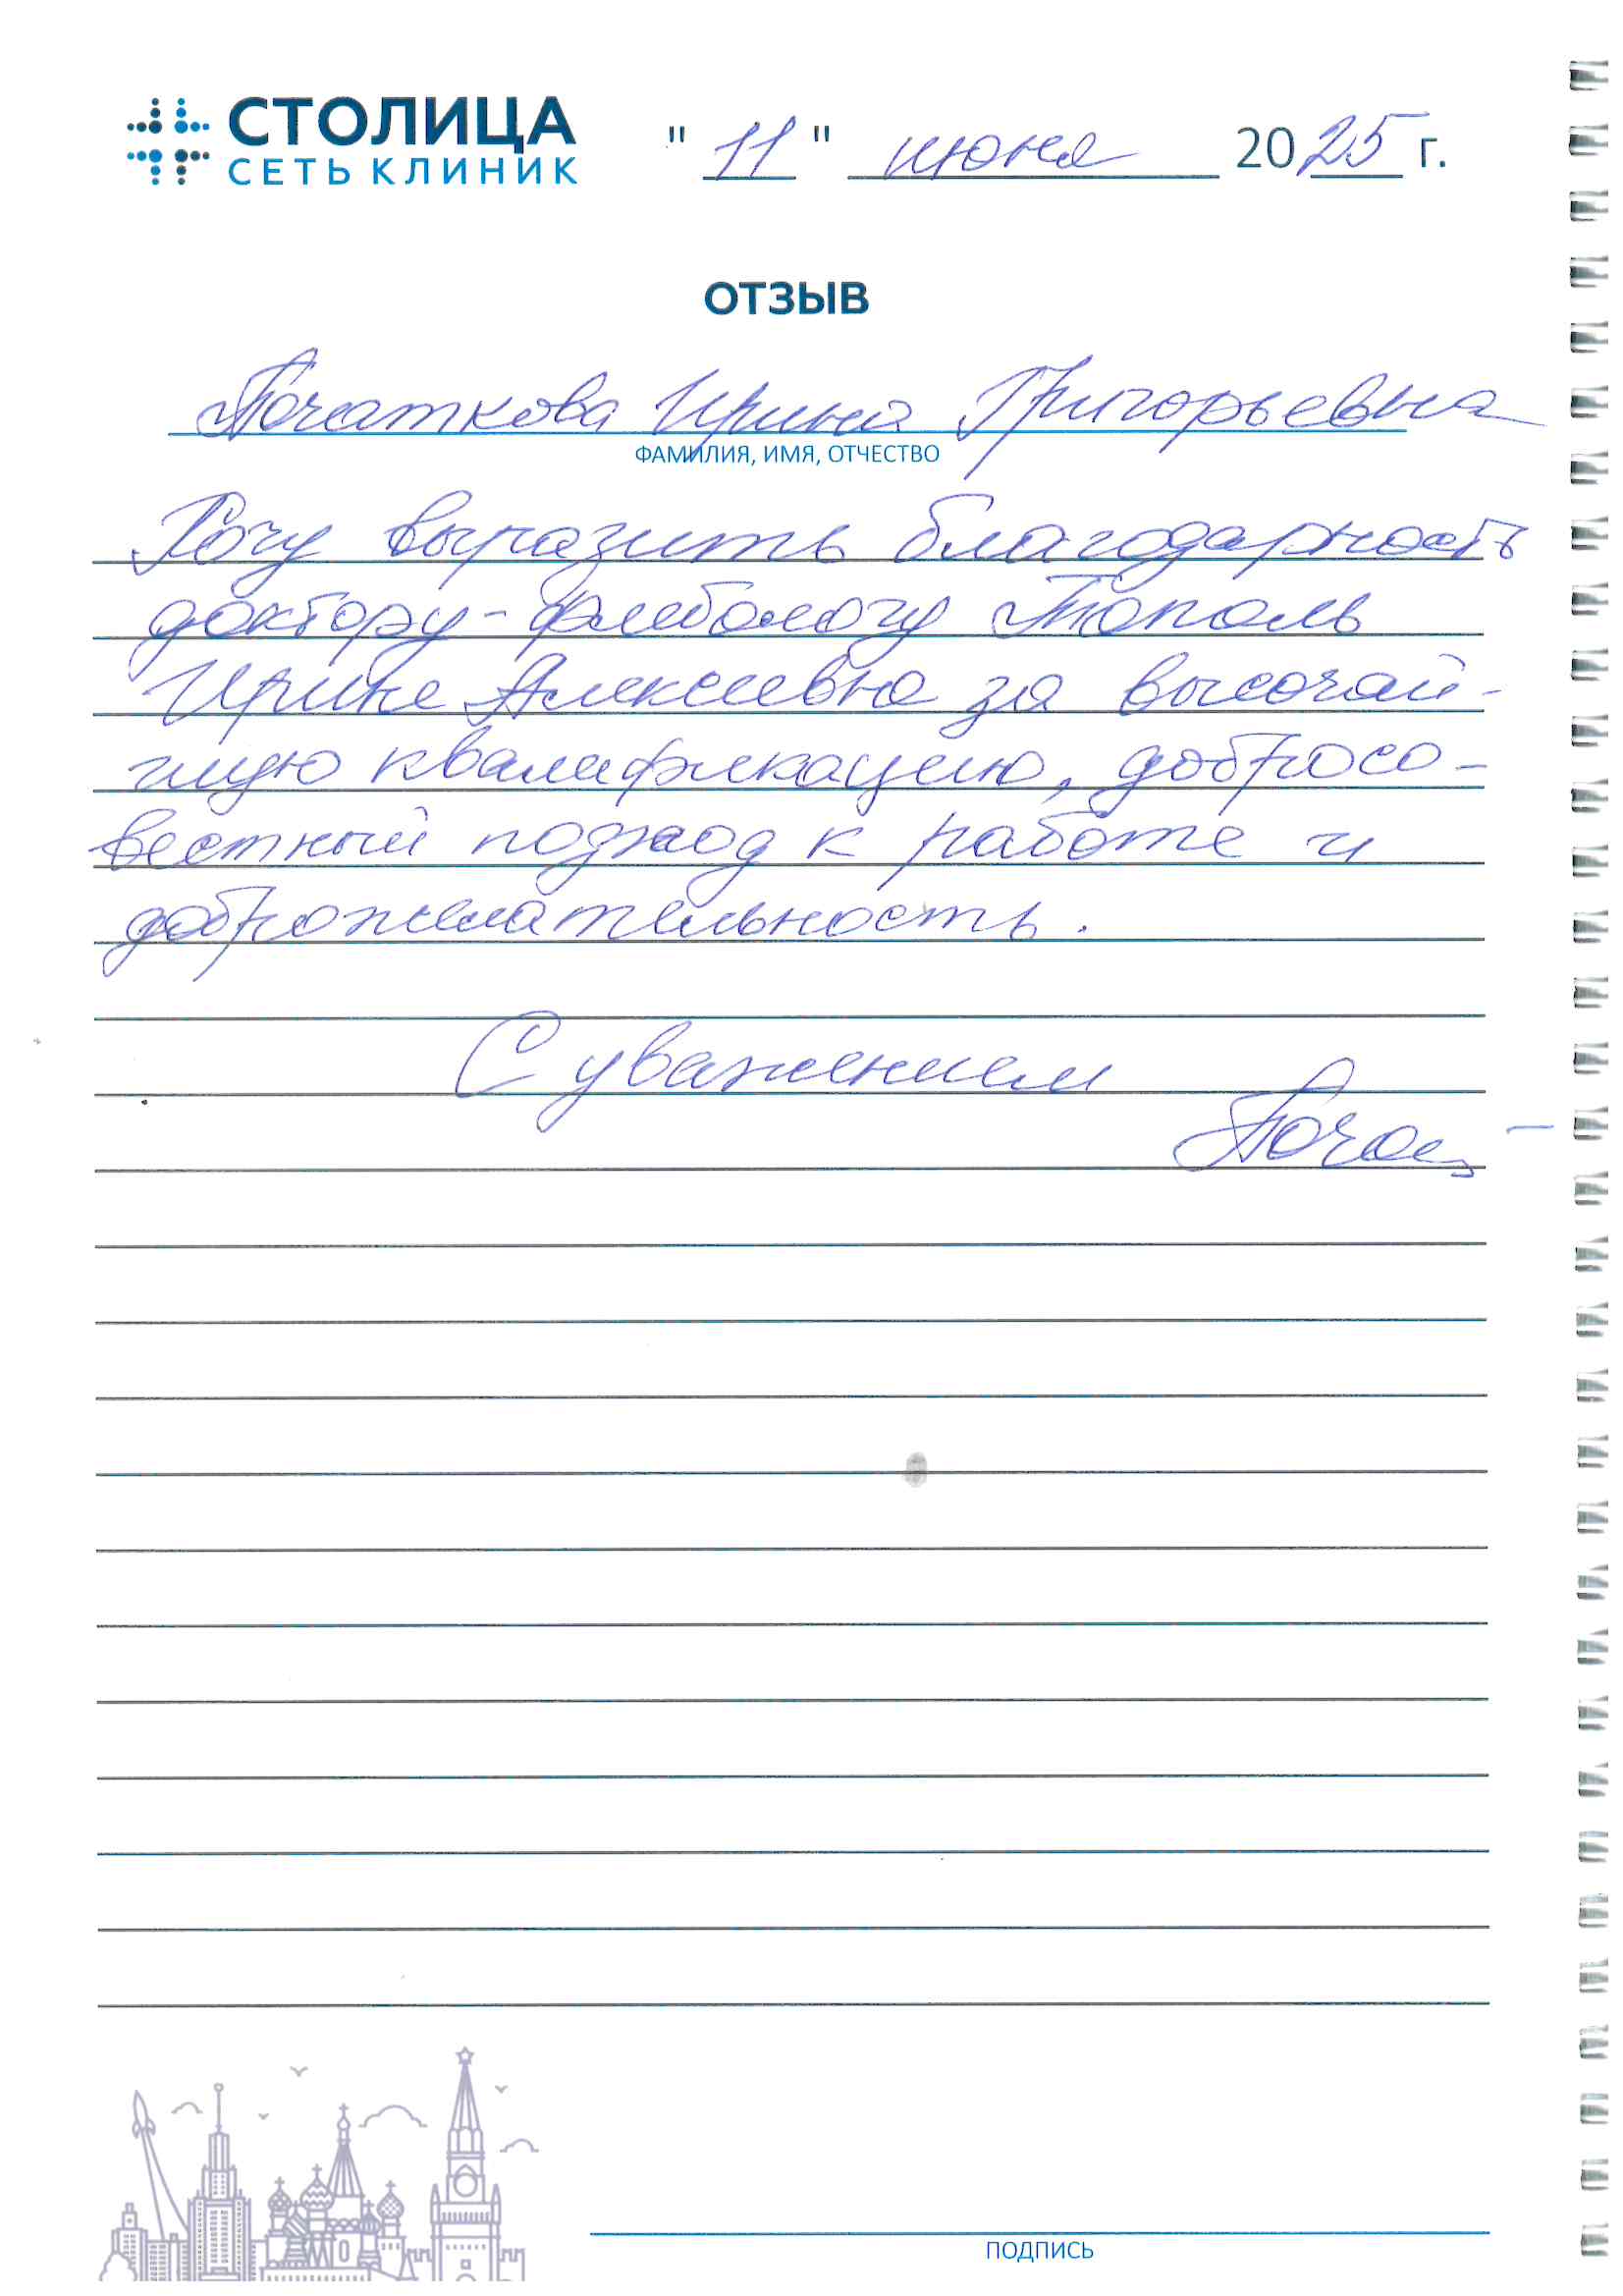 СТОЛИЦА
СЕТЬ КЛИНИК
" 11 " июня 2025 г.
ОТЗЫВ
Початкова Ирина Григорьевна
ФАМИЛИЯ, ИМЯ, ОТЧЕСТВО
Хочу выразить благодарность
доктору-флебологу Тополь
Ирине Алексеевне за высочай-
шую квалификацию, добросо-
вестный подход к работе и
доброжелательность.
С уважением
ПОДПИСЬ